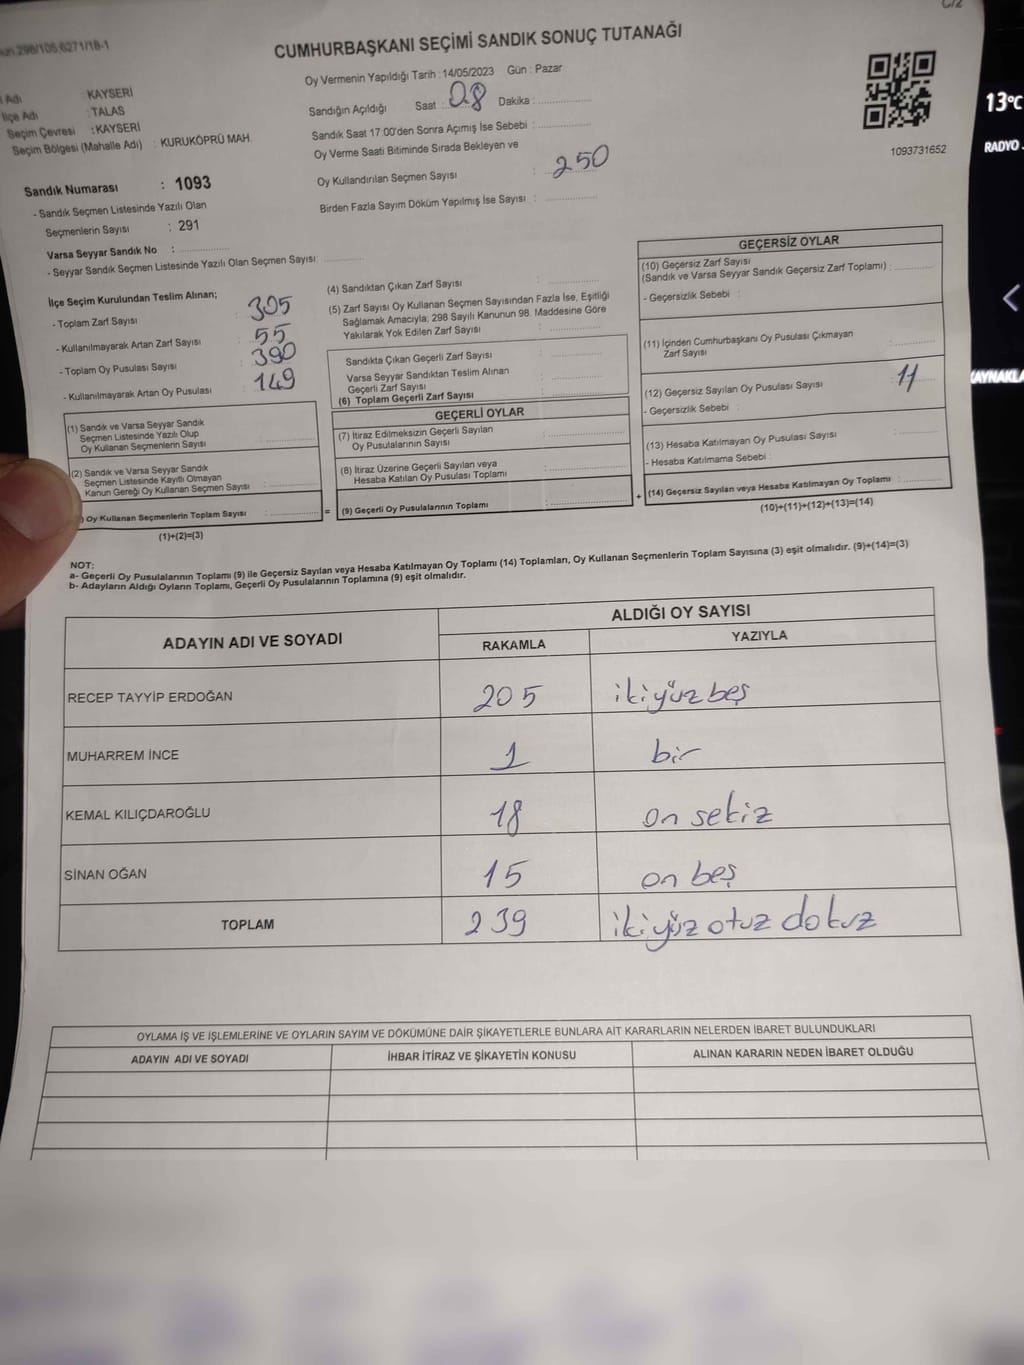 CUMHURBAŞKANI SEÇİMİ SANDIK SONUÇ TUTANAĞI
Adı : KAYSERİ
İlçe Adı : TALAS
Seçim Çevresi : KAYSERİ
Seçim Bölgesi (Mahalle Adı) : KURUKÖPRÜ MAH.
Sandık Numarası : 1093
- Sandık Seçmen Listesinde Yazılı Olan
Seçmenlerin Sayısı : 291
Varsa Seyyar Sandık No :
- Seyyar Sandık Seçmen Listesinde Yazılı Olan Seçmen Sayısı:
Oy Vermenin Yapıldığı Tarih : 14/05/2023 Gün : Pazar
Sandığın Açıldığı Saat : 08 Dakika :
Sandık Saat 17:00'den Sonra Açımış İse Sebebi :
Oy Verme Saati Bitiminde Sırada Bekleyen ve
Oy Kullandırılan Seçmen Sayısı : 250
Birden Fazla Sayım Döküm Yapılmış İse Sayısı :
1093731652
13°C
RADYO
İlçe Seçim Kurulundan Teslim Alınan;
- Toplam Zarf Sayısı : 305
- Kullanılmayarak Artan Zarf Sayısı : 55
- Toplam Oy Pusulası Sayısı : 390
- Kullanılmayarak Artan Oy Pusulası : 149
(1) Sandık ve Varsa Seyyar Sandık
Seçmen Listesinde Yazılı Olup
Oy Kullanan Seçmenlerin Sayısı :
(2) Sandık ve Varsa Seyyar Sandık
Seçmen Listesinde Kayıtlı Olmayan
Kanun Gereği Oy Kullanan Seçmen Sayısı :
) Oy Kullanan Seçmenlerin Toplam Sayısı :
(1)+(2)=(3)
(4) Sandıktan Çıkan Zarf Sayısı :
(5) Zarf Sayısı Oy Kullanan Seçmen Sayısından Fazla İse, Eşitliği
Sağlamak Amacıyla; 298 Sayılı Kanunun 98. Maddesine Göre
Yakılarak Yok Edilen Zarf Sayısı :
Sandıkta Çıkan Geçerli Zarf Sayısı :
Varsa Seyyar Sandıktan Teslim Alınan
Geçerli Zarf Sayısı :
(6) Toplam Geçerli Zarf Sayısı :
GEÇERLİ OYLAR
(7) İtiraz Edilmeksizin Geçerli Sayılan
Oy Pusulalarının Sayısı :
(8) İtiraz Üzerine Geçerli Sayılan veya
Hesaba Katılan Oy Pusulası Toplamı :
= (9) Geçerli Oy Pusulalarının Toplamı :
GEÇERSİZ OYLAR
(10) Geçersiz Zarf Sayısı
(Sandık ve Varsa Seyyar Sandık Geçersiz Zarf Toplamı) :
- Geçersizlik Sebebi :
(11) İçinden Cumhurbaşkanı Oy Pusulası Çıkmayan
Zarf Sayısı :
(12) Geçersiz Sayılan Oy Pusulası Sayısı : 11
- Geçersizlik Sebebi :
(13) Hesaba Katılmayan Oy Pusulası Sayısı :
- Hesaba Katılmama Sebebi :
+ (14) Geçersiz Sayılan veya Hesaba Katılmayan Oy Toplamı :
(10)+(11)+(12)+(13)=(14)
KAYNAKLA
NOT:
a- Geçerli Oy Pusulalarının Toplamı (9) ile Geçersiz Sayılan veya Hesaba Katılmayan Oy Toplamı (14) Toplamları, Oy Kullanan Seçmenlerin Toplam Sayısına (3) eşit olmalıdır. (9)+(14)=(3)
b- Adayların Aldığı Oyların Toplamı, Geçerli Oy Pusulalarının Toplamına (9) eşit olmalıdır.
ADAYIN ADI VE SOYADI ALDIĞI OY SAYISI
RAKAMLA YAZIYLA
RECEP TAYYİP ERDOĞAN 205 ikiyüz beş
MUHARREM İNCE 1 bir
KEMAL KILIÇDAROĞLU 18 on sekiz
SİNAN OĞAN 15 on beş
TOPLAM 239 ikiyüz otuz dokuz
OYLAMA İŞ VE İŞLEMLERİNE VE OYLARIN SAYIM VE DÖKÜMÜNE DAİR ŞİKAYETLERLE BUNLARA AİT KARARLARIN NELERDEN İBARET BULUNDUKLARI
ADAYIN ADI VE SOYADI İHBAR İTİRAZ VE ŞİKAYETİN KONUSU ALINAN KARARIN NEDEN İBARET OLDUĞU